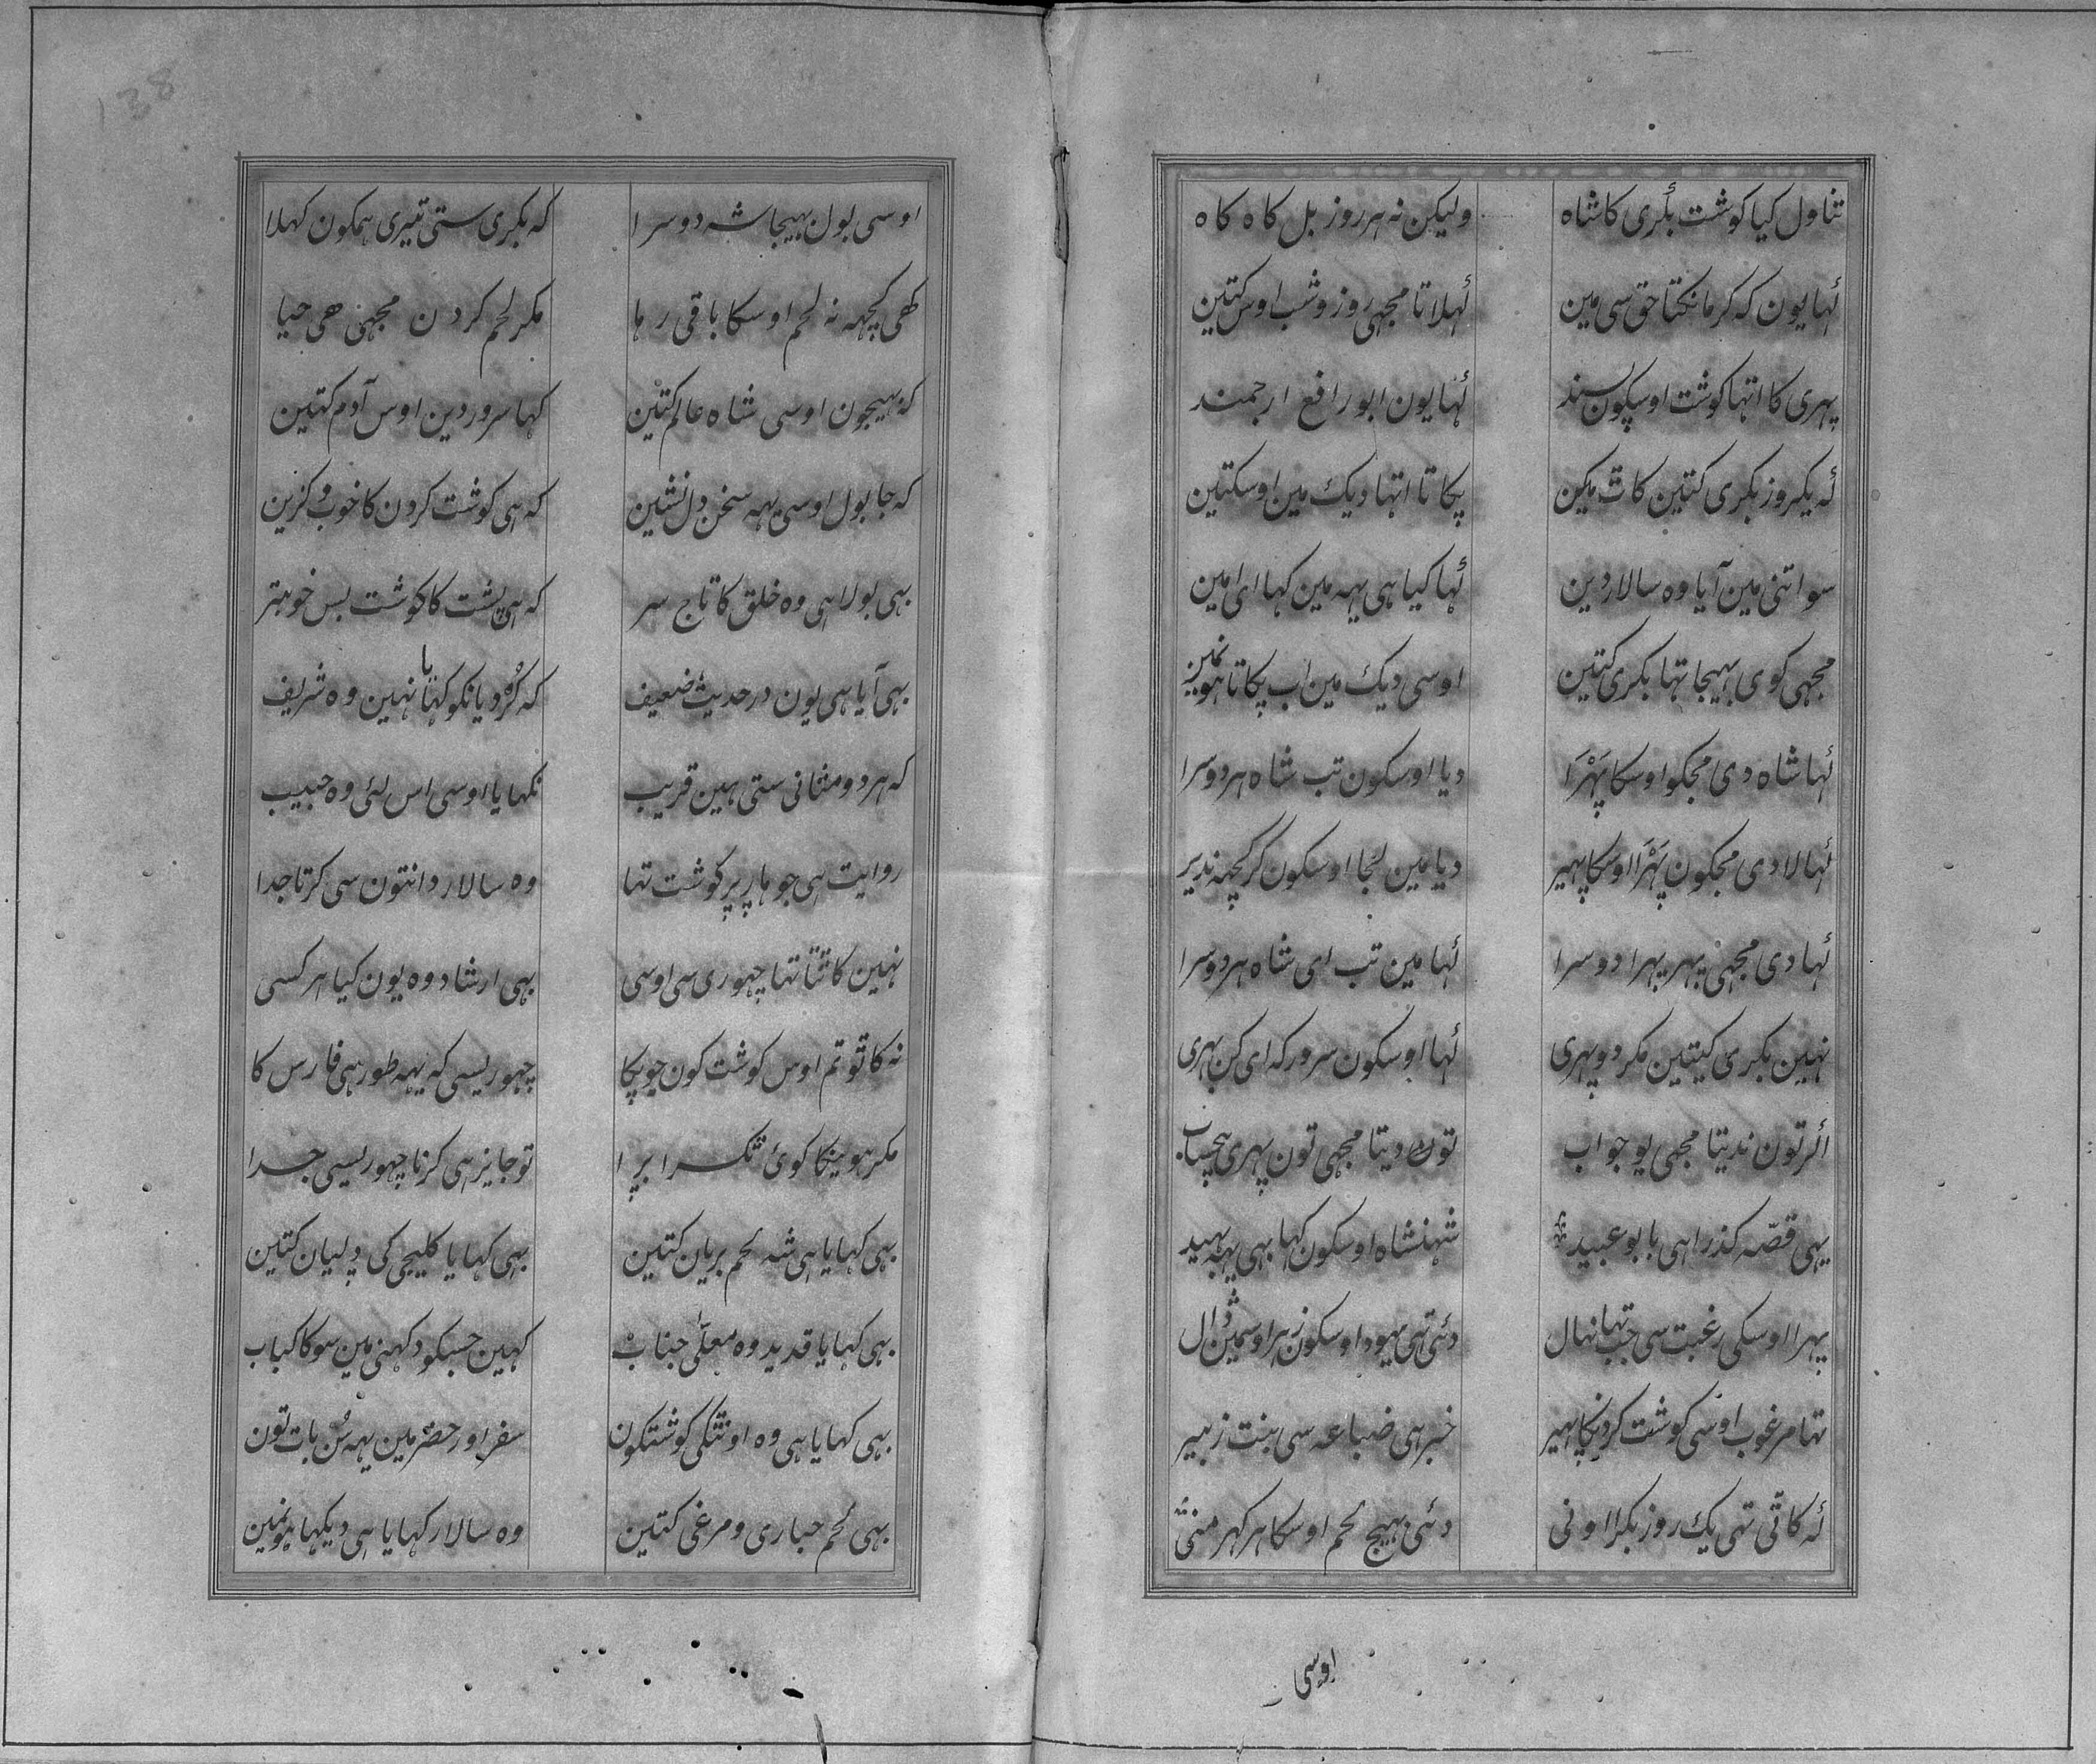 تناول کیا کوشت بکری کا شاه ولیکن نه هر روز بل کاه کاه
کہا یون که کر مانکتا حق سی مین کہلاتا مجهی روز و شب اوس کتین
پہری کا اتہا کوشت اوسکون پسند کہا یون ابو رافع ارجمند
که یکروز بکری کتین کات مین پکاتا اتہا دیک مین اوسکتین
سو اتنی مین آیا وه سالار دین کہا کیا ہی یہہ مین کہا ای امین
مجہی کوی بہیجا تہا بکری کتین اوسی دیک مین اب پکاتا ہونمین
کہا شاه دی مجکو اوسکا پہرا دیا اوسکون تب شاه هر دوسرا
کہا لا دی مجکون پہرا اوسکا پہیر دیا مین لیجا اوسکون کر کچہه ندیر
کہا دی مجہی پہر پہرا دوسرا کہا مین تب ای شاه هر دوسرا
نہین بکری کیتین مکر دو پہری کہا اوسکون سرور که ای کن بہری
اکر تون ندیتا مجہی یو جواب تون دیتا مجہی تون پہری بیحساب
یہی قصّه کذرا ہی بابو عبید شہنشاه اوسکون کہا بہی یہہ بہید
پہرا اوسکی رغبت سی جب تہا نہال دئی تہی یہود اوسکون زہر اوسمین ڈال
تہا مرغوب اوسی کوشت کردنکا پہیر خبر ہی ضباعه سی بنت زبیر
که کاتی تہی یک روز بکرا اونی دئی بہیج لحم اوسکا هر کہر منی
اوسی
138
اوسی بول بہیجا شه دوسرا که بکری ستی تیری ہمکون کہلا
کهی کچہه نه لحم اوسکا باقی رہا مکر لحم کردن مجہی هی حیا
که بہیجون اوسی شاه عالم کتین کہا سرور دین اوس آدم کتین
که جا بول اوسی یہہ سخن دل نشین که ہی کوشت کردن کا خوب و کزین
بہی بولا ہی وه خلق کا تاج سر که ہی پشت کا کوشت بس خوبتر
بہی آیا ہی یون در حدیث ضعیف که کردیانکو کہاتا نہین وه شریف
که هر دو مثانی ستی ہین قریب نکہایا اوسی اس لئی وه حبیب
روایت ہی جو ہار پر کوشت تہا وه سالار دانتون سی کرتا جدا
نہین کاتتا تہا چہوری سی اوسی بہی ارشاد وه یون کیا هر کسی
نه کاتو تم اوس کوشت کون جو پکا چہوریسی که یہہ طور ہی فارس کا
مکر ہوینکا کوئ تکرا برا تو جایز ہی کرنا چہوریسی جدا
بہی کہایا ہی شه لحم بریان کتین بہی کہایا کلیجی کی دلیان کتین
بہی کہایا قدید وه معلّی جناب کہین جسکو دکہنی مین سوکا کباب
بہی کہایا ہی وه اونتکی کوشتکون سفر اور حضر مین یہہ سن بات تون
بہی لحم حباری و مرغی کتین وه سالار کہایا ہی دیکہا ہونمین